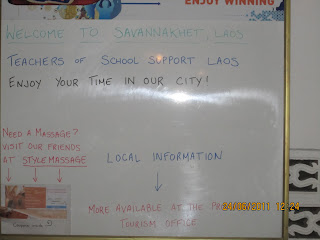 ENJOY WINNING
WELCOME TO SAVANNAKHET, LAOS
TEACHERS OF SCHOOL SUPPORT LAOS
ENJOY YOUR TIME IN OUR CITY!
NEED A MASSAGE?
VISIT OUR FRIENDS
AT STYLE MASSAGE
LOCAL INFORMATION
MORE AVAILABLE AT THE
TOURISM OFFICE
12:24